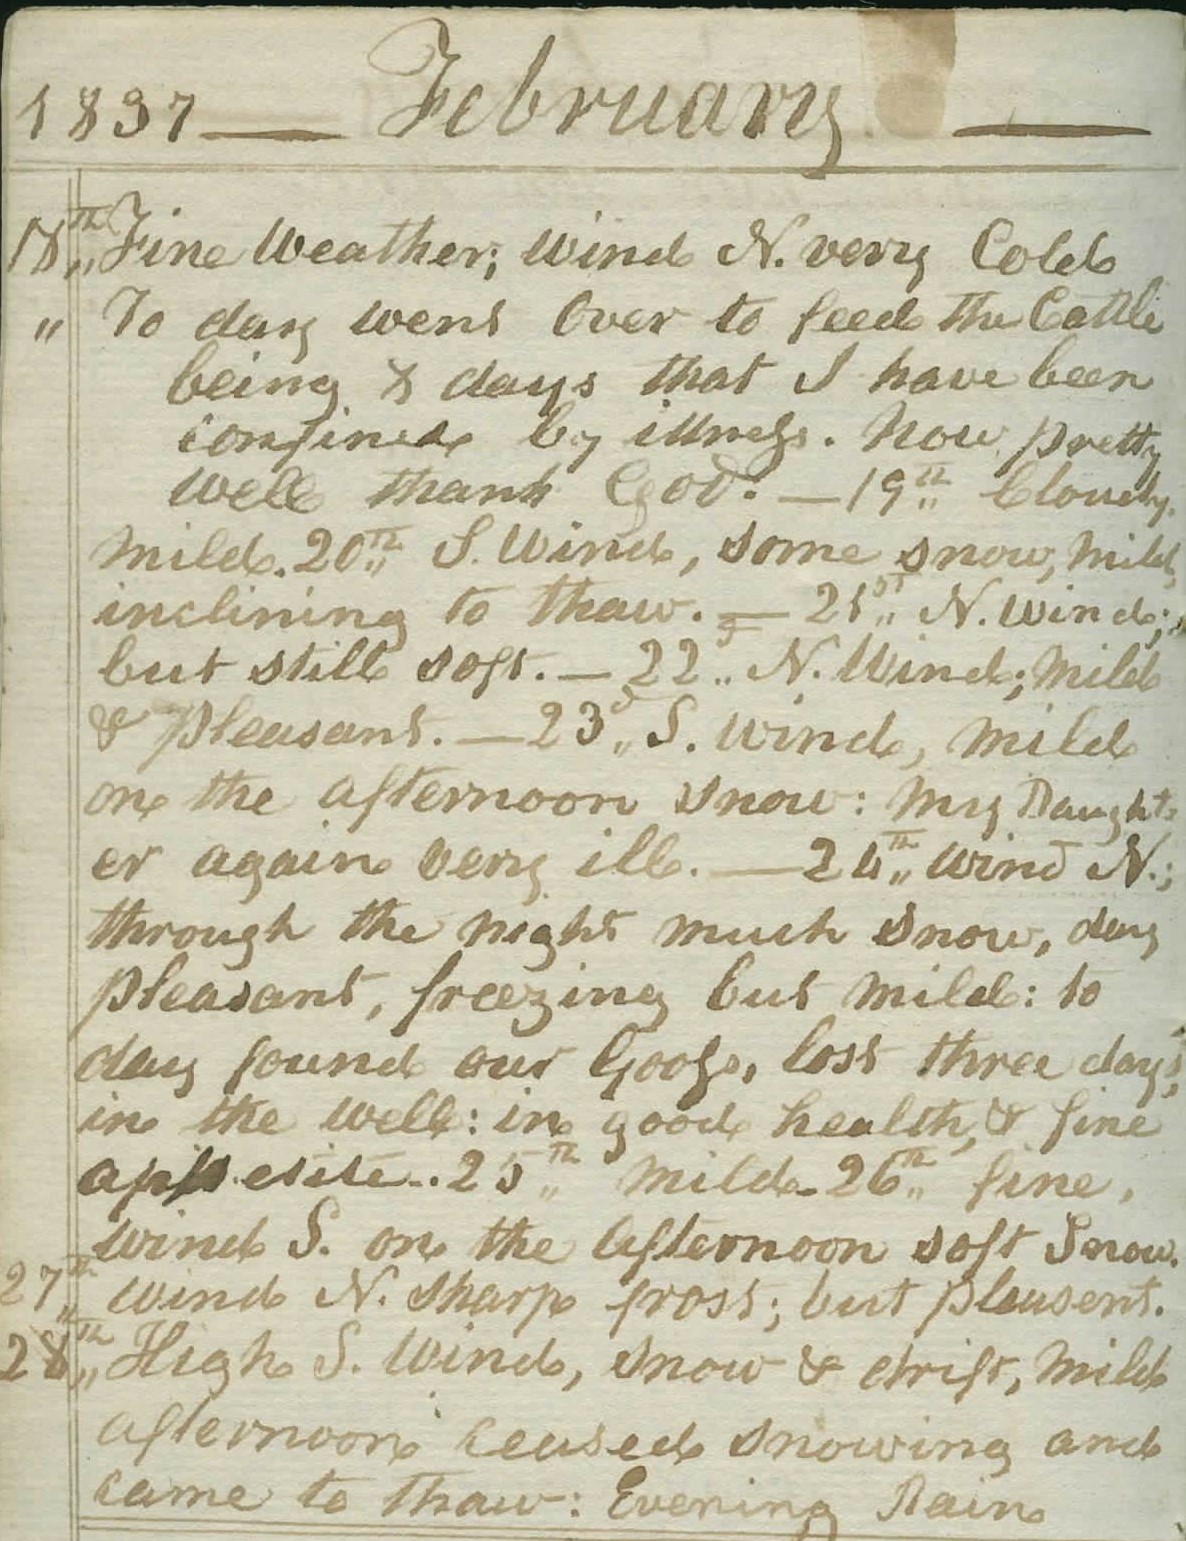 1837 — February —
18th Fine Weather; Wind N. very Cold
" To day went Over to feed the Cattle
being 8 days that I have been
confined by illness. Now pretty
well thank God. — 19th Cloudy.
Mild. 20th S. Wind, some snow, Mild,
inclining to thaw. — 21st N. Wind;
but still soft. — 22d N. Wind; Mild
& pleasant. — 23d S. Wind, Mild
on the afternoon snow: My Daught-
er again very ill. — 24th Wind N.;
through the night much snow, day
pleasant, freezing but Mild: to
day found our Goose, lost three days,
in the well: in good health, & fine
appetite. 25th Mild. 26th fine,
Wind S. on the afternoon soft Snow.
27th Wind N. sharp frost; but pleasent.
28th High S. Wind, snow & drift, Mild
afternoon ceased snowing and
came to thaw: Evening Rain